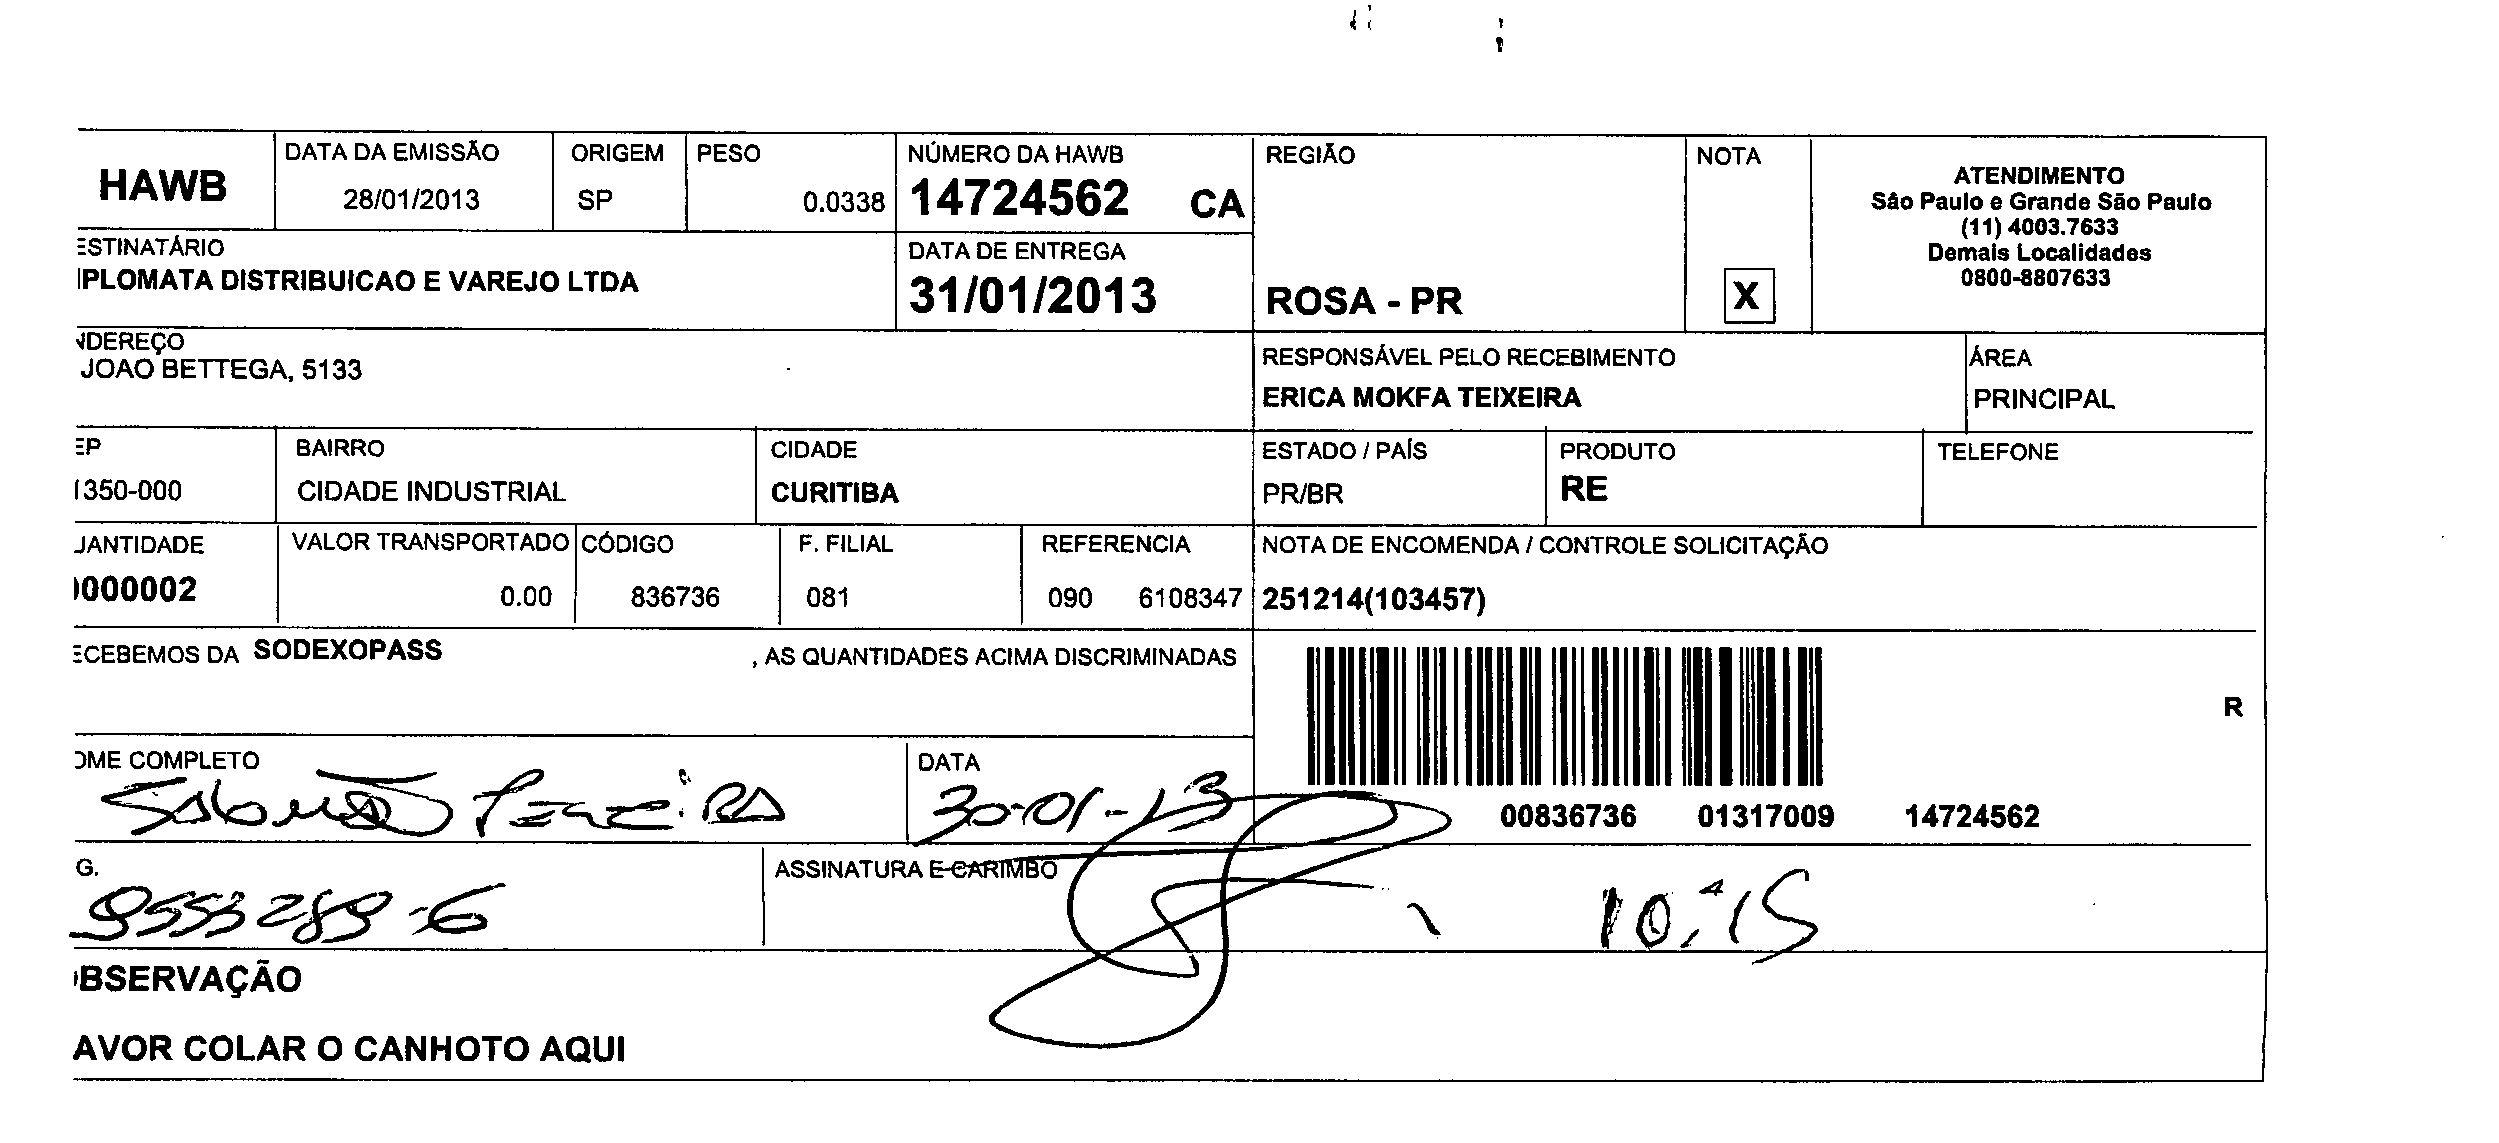 HAWB
DATA DA EMISSÃO
28/01/2013
ORIGEM
SP
PESO
0.0338
NÚMERO DA HAWB
14724562 CA
REGIÃO
ROSA - PR
NOTA
X
ATENDIMENTO
São Paulo e Grande São Paulo
(11) 4003.7633
Demais Localidades
0800-8807633
ESTINATÁRIO
IPLOMATA DISTRIBUICAO E VAREJO LTDA
DATA DE ENTREGA
31/01/2013
NDEREÇO
JOAO BETTEGA, 5133
RESPONSÁVEL PELO RECEBIMENTO
ERICA MOKFA TEIXEIRA
ÁREA
PRINCIPAL
EP
1350-000
BAIRRO
CIDADE INDUSTRIAL
CIDADE
CURITIBA
ESTADO / PAÍS
PR/BR
PRODUTO
RE
TELEFONE
UANTIDADE
0000002
VALOR TRANSPORTADO
0.00
CÓDIGO
836736
F. FILIAL
081
REFERENCIA
090 6108347
NOTA DE ENCOMENDA / CONTROLE SOLICITAÇÃO
251214(103457)
ECEBEMOS DA SODEXOPASS , AS QUANTIDADES ACIMA DISCRIMINADAS
R
OME COMPLETO
Salomão Pereira
DATA
30-01-13
00836736 01317009 14724562
G.
9553289-6
ASSINATURA E CARIMBO
10:15
BSERVAÇÃO
AVOR COLAR O CANHOTO AQUI